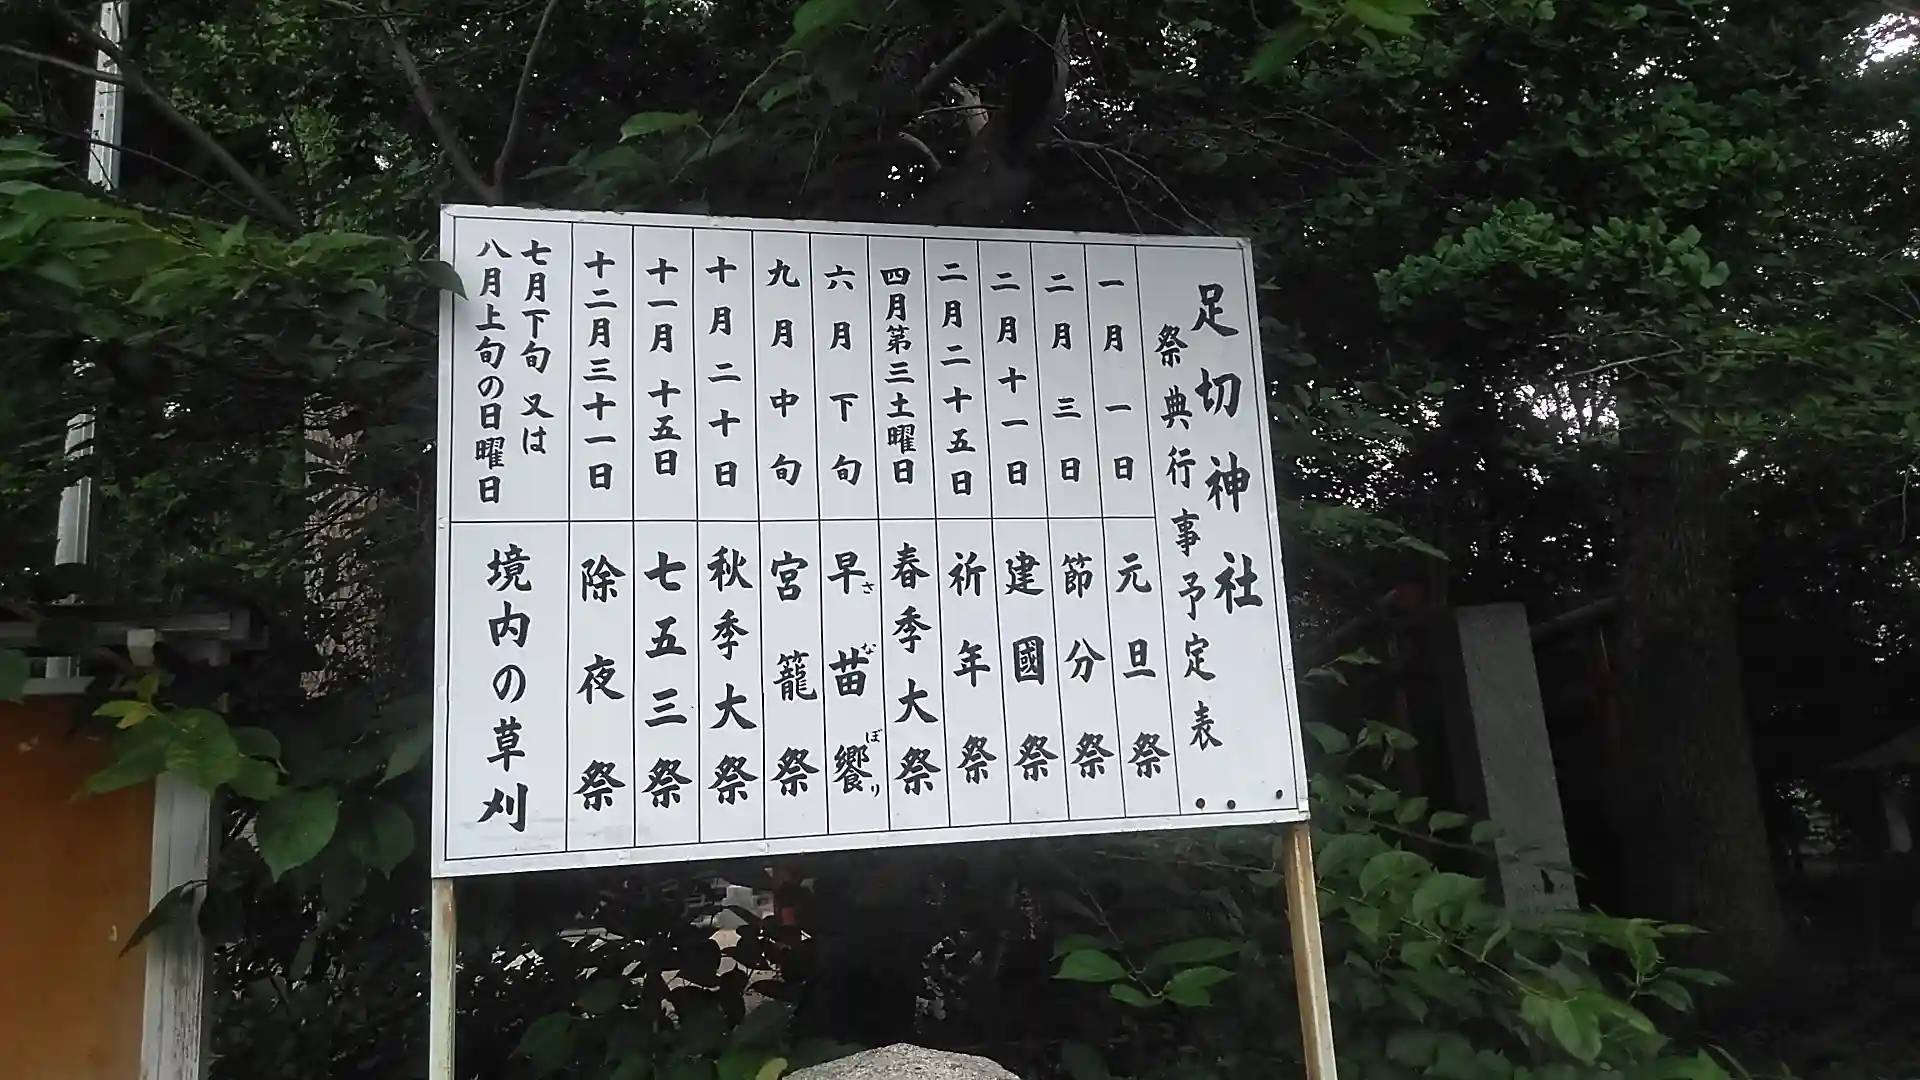 足切神社
祭典行事予定表
一月一日 元旦祭
二月三日 節分祭
二月十一日 建國祭
二月二十五日 祈年祭
四月第三土曜日 春季大祭
六月下旬 早苗饗
さなぼり
九月中旬 宮籠祭
十月二十日 秋季大祭
十一月十五日 七五三祭
十二月三十一日 除夜祭
七月下旬又は
八月上旬の日曜日
境内の草刈